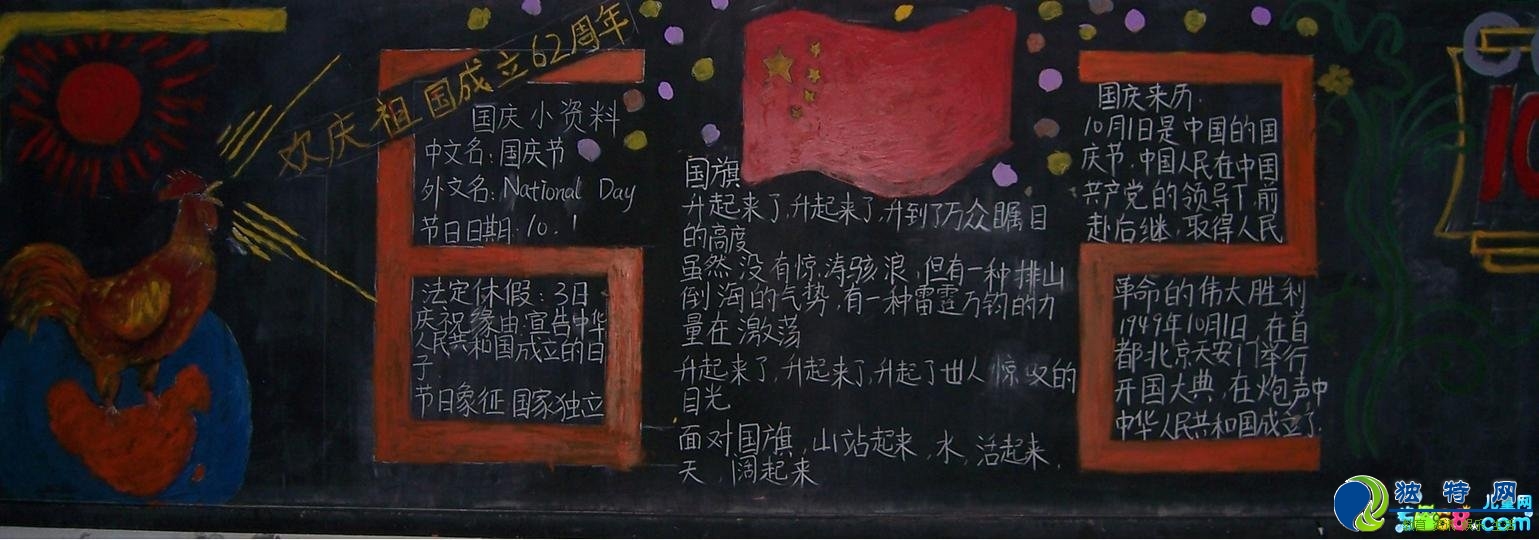 欢庆祖国成立62周年
国庆小资料
中文名:国庆节
外文名:National Day
节日日期.10.1
法定休假:3日
庆祝缘由:宣告中华
人民共和国成立的日
子
节日象征 国家独立
国旗
升起来了,升起来了,升到了万众瞩目
的高度
虽然没有惊涛骇浪,但有一种排山
倒海的气势,有一种雷霆万钧的力
量在激荡
升起来了,升起来了,升起了世人惊叹的
目光
面对国旗,山站起来,水,活起来,
天,阔起来
国庆来历.
10月1日是中国的国
庆节.中国人民在中国
共产党的领导下,前
赴后继,取得人民
革命的伟大胜利
1949年10月1日,在首
都北京天安门举行
开国大典,在炮声中
中华人民共和国成立了.
10
独特网
儿童网
5068.com